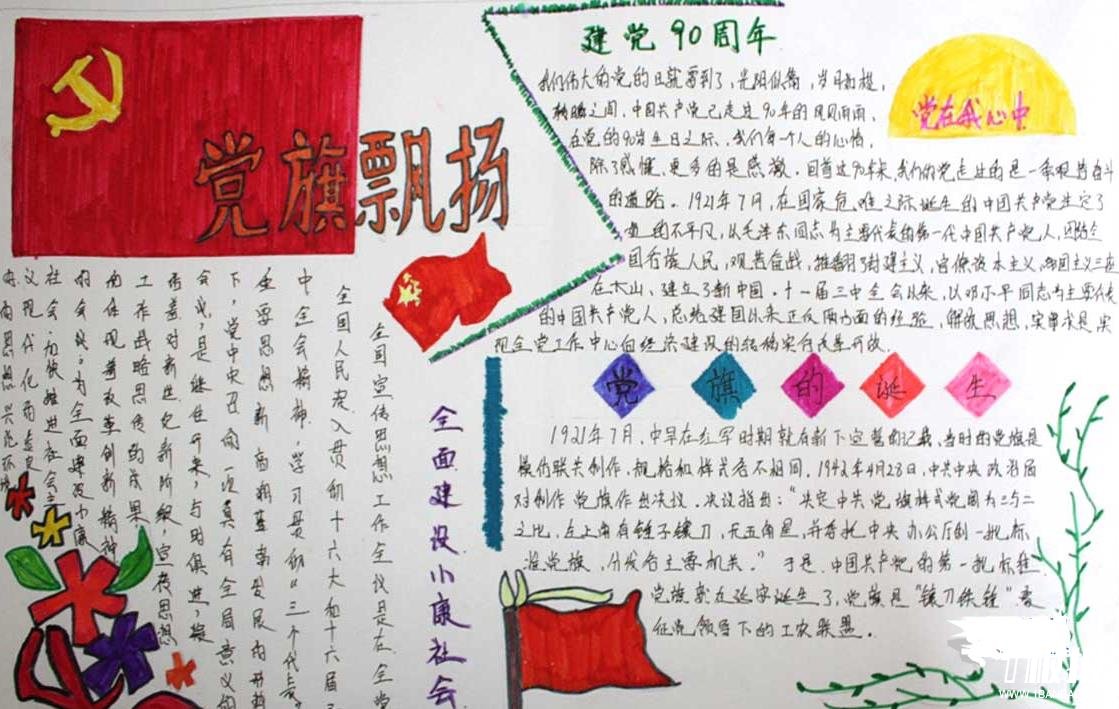 党旗飘扬
建党90周年
我们伟大的党的日就要到了,光阴似箭,岁月如梭,
转瞬之间,中国共产党已走过90年的风风雨雨,
在党的90岁生日之际,我们每一个人的心情,
除了感慨,更多的是感激。回首这90年来,我们的党走过的是一条艰苦奋斗
的道路。1921年7月,在国家危难之际诞生的中国共产党注定了
的不平凡,从毛泽东同志为主要代表的第一代中国共产党人,团结全
国各族人民,艰苦奋战,推翻了封建主义,官僚资本主义,帝国主义三座
在大山、建立了新中国。十一届三中全会以来,以邓小平同志为主要代表
的中国共产党人,总结建国以来正反两方面的经验,解放思想,实事求是,实
现全党工作中心向经济建设的转移实行改革开放。
党在我心中
党旗的诞生
1921年7月,中早在红军时期就有新下定誓的记载,当时的党旗是
模仿联共制作,规格和样式各不相同,1942年4月28日,中共中央政治局
对制作党旗作出决议。决议指出:“决定中共党旗样式宽阔为三与二
之比,左上角有锤子镰刀,无五角星,并委托中央办公厅制一批标
准党旗,分发各主要机关。”于是,中国共产党的第一批标准
党旗就在延安诞生了,党旗是“镰刀铁锤”象
征党领导下的工农联盟。
全面建设小康社会
全国宣传思想工作会议是在全党
全国人民深入贯彻十六大和十六届三
中全会精神,学习贯彻“三个代表
重要思想新高潮蓬勃发展的形势
下,党中央召开的一次具有全局意义的
会议,是继往开来,与时俱进,凝
着对新世纪新阶级,宣传思想
工作战略思传的成果
的体现着改革创新精神
的会议,为全面建设小康
社会,加快推进社会主
义现代化
WWW.1BAI.COM